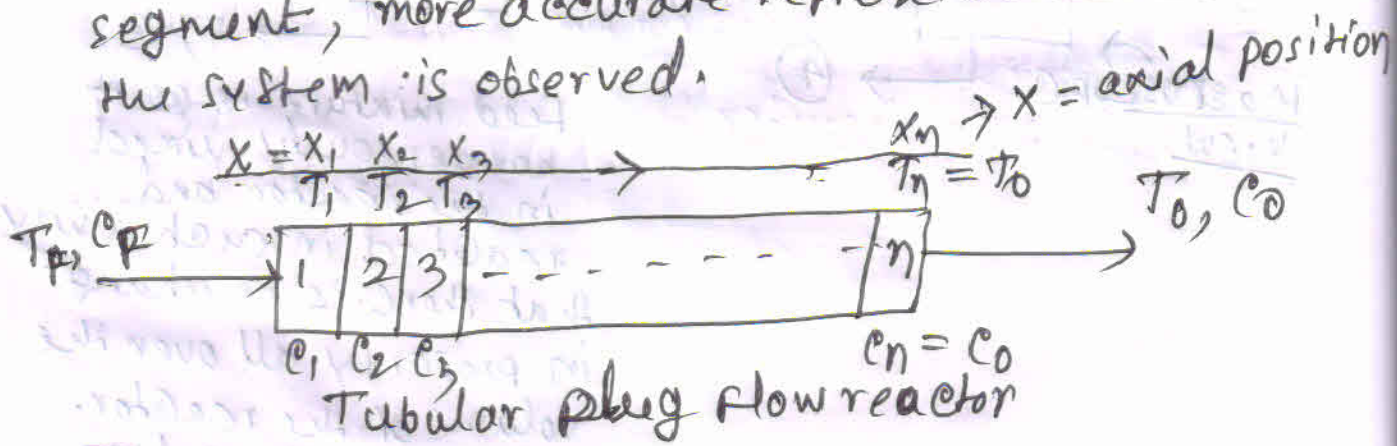 segment, more accurate
the system is observed.
X = X₁ X₂ X₃ Xn → X = axial position
T₁ T₂ T₃ Tn = To
TF, CF To, Co
1 2 3 - - - - - - - n
C₁ C₂ C₃ Cn = Co
Tubular plug flow reactor